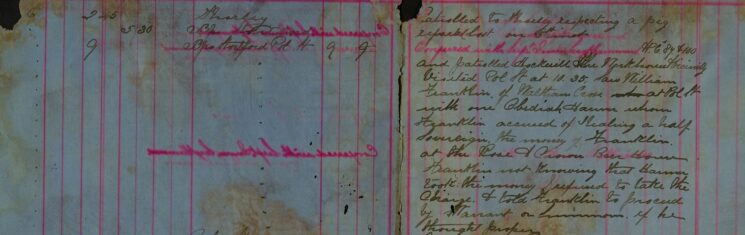 6 2 45 Thorley
5 30
9 Bps Stortford Pol St 9 9
Patrolled to Thorley respecting a pig
reported lost on 6th inst
Conferred with
and Patrolled Hockerill the Workhouse Vicinity
Visited Pol St at 10.35 saw William
Franklin of Waltham Cross at Pol St
with one Obediah Hamm whom
Franklin accused of stealing a half
Sovereign the money of Franklin
at the Rose & Crown Beer House
Franklin not knowing that Hamm
took the money I refused to take the
Charge & told Franklin to proceed
by Warrant or summons if he
thought proper